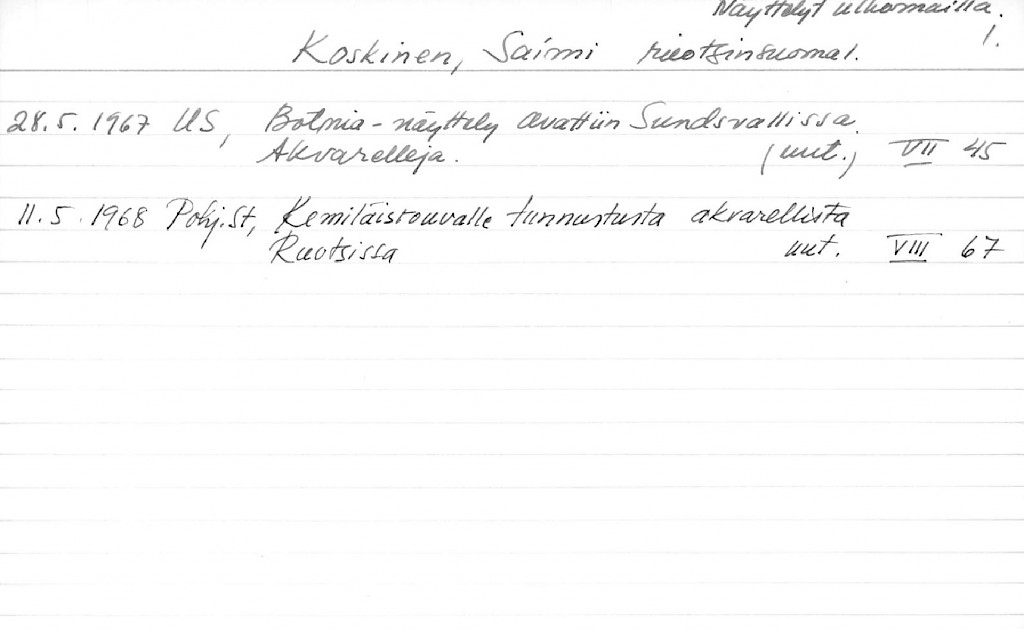 Näyttelyt ulkomailla.
1.
Koskinen, Saimi ruotsinsuomal.
28.5.1967 US, Botnia-näyttely avattiin Sundsvallissa.
Akvarelleja. (uut.) VII 45
11.5.1968 Pohj.St, Kemiläisrouvalle tunnustusta akvarellista
Ruotsissa uut. VIII 67